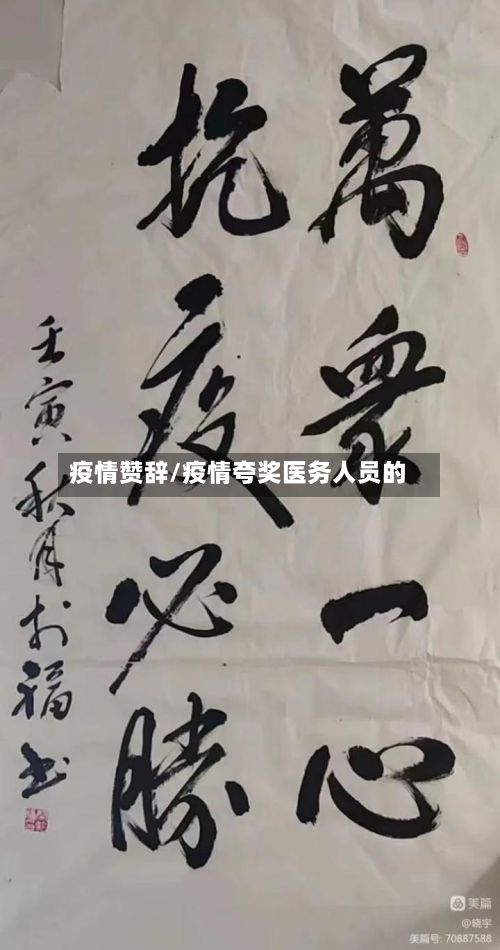 萬衆一心
抗疫必勝
壬寅秋月於福
书
疫情赞辞/疫情夸奖医务人员的
美篇
@晓宇
美篇号: 70887588